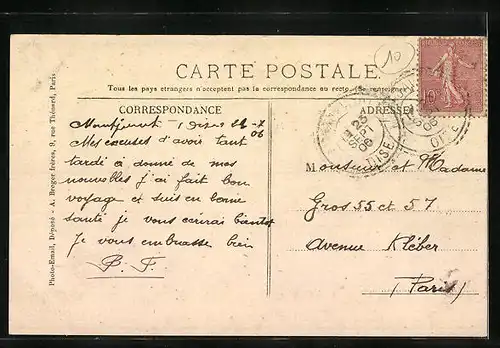 10
CARTE POSTALE
Tous les pays étrangers n'acceptent pas la correspondance au recto. (Se renseigner
CORRESPONDANCE
ADRESSE
Oise 22-7
06
Mes excuses d'avoir tant
tardé a donné de mes
nouvelles j'ai fait bon
voyage et suis en bonne
santé je vous écrirai bientot
Je vous embrasse bien
B. F.
Monsieur et Madame
Gros 55 et 57
Avenue Kléber
(Paris)
OISE
10
Photo-Email, Déposé - A. Breger frères, 9, rue Thénard, Paris